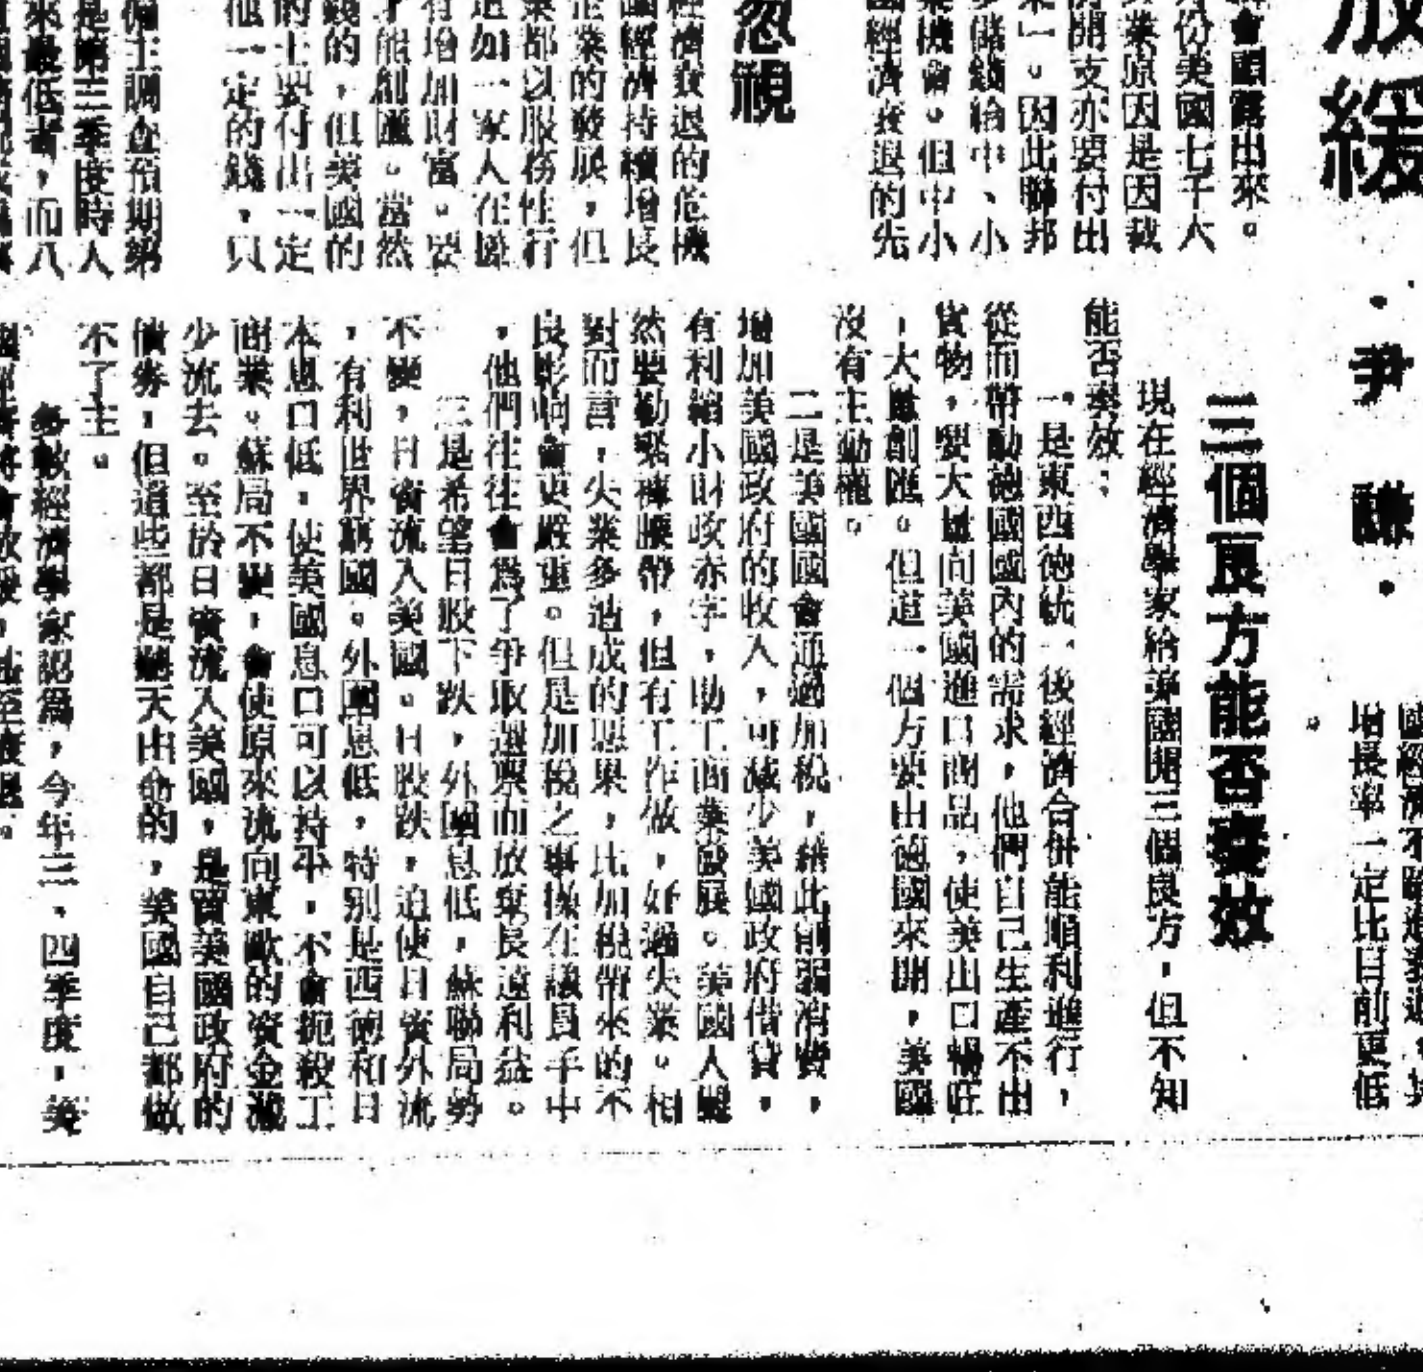 放緩
·尹謙·
會國露出來。
份美國七千大
業原因是因裁
開支亦要付出
」。因此聯邦
儲錢給中、小
業機會。但中小
國經濟衰退的先
忽視
經濟衰退的危機
國經濟持續增長
企業的發展,但
業都以服務性行
這如一家人在邊
有增加財富。要
才能創匯。當然
錢的,但美國的
的主要付出一定
他一定的錢,只
偏主調查預期第
是第三季度時人
來最低者,而八
增長率一定比目前更低
。
三個良方能否奏效
現在經濟學家給美國開三個良方,但不知
能否奏效:
一是東西德統一後經濟合併能順利進行,
從而帶動德國國內的需求,他們自己生產不出
貨物,要大量向美國進口商品,使美出口暢旺
,大量創匯。但這一個方要由德國來開,美國
沒有主動權。
二是美國國會通過加稅,藉此削弱消費,
增加美國政府的收入,可減少美國政府借貸,
有利縮小財政赤字,助工商業發展。美國人雖
然要勒緊褲腰帶,但有工作做,好過失業。相
對而言,失業多造成的惡果,比加稅帶來的不
良影响會更嚴重。但是加稅之事操在議員手中
,他們往往會爲了爭取選票而放棄長遠利益。
三是希望日股下跌,外圍息低,蘇聯局勢
不變,日資流入美國。日股跌,迫使日資外流
,有利世界窮國。外圍息低,特別是西德和日
本息口低,使美國息口可以持平,不會扼殺工
商業。蘇局不變,會使原來流向東歐的資金減
少流去。至於日資流入美國,是買美國政府的
債券,但這些都是聽天由命的,美國自己都做
不了主。
多數經濟學家認爲,今年三、四季度,美